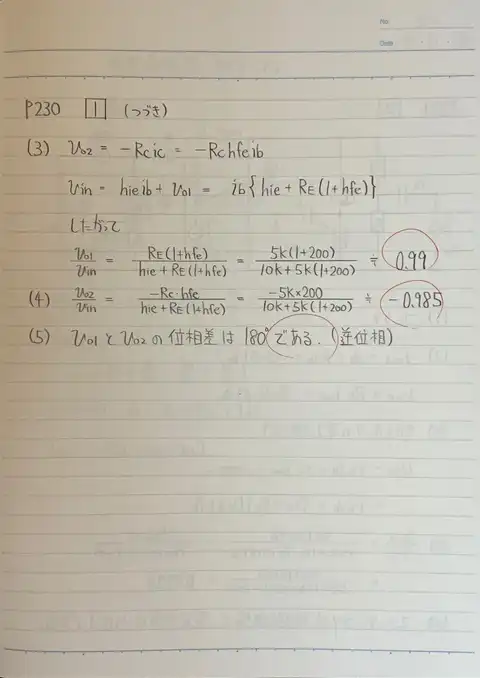 No.
Date
P230 1 (つづき)
(3) Vo2 = -Rc ic = -Rc hfe ib
Vin = hie ib + Vo1 = ib{hie + RE(1+hfe)}
したがって
Vo1/Vin = RE(1+hfe)/(hie+RE(1+hfe)) = 5k(1+200)/(10k+5k(1+200)) ≒ 0.99
(4) Vo2/Vin = -Rc·hfe/(hie+RE(1+hfe)) = -5k×200/(10k+5k(1+200)) ≒ -0.985
(5) Vo1 と Vo2 の 位相差 は 180° である. (逆位相)